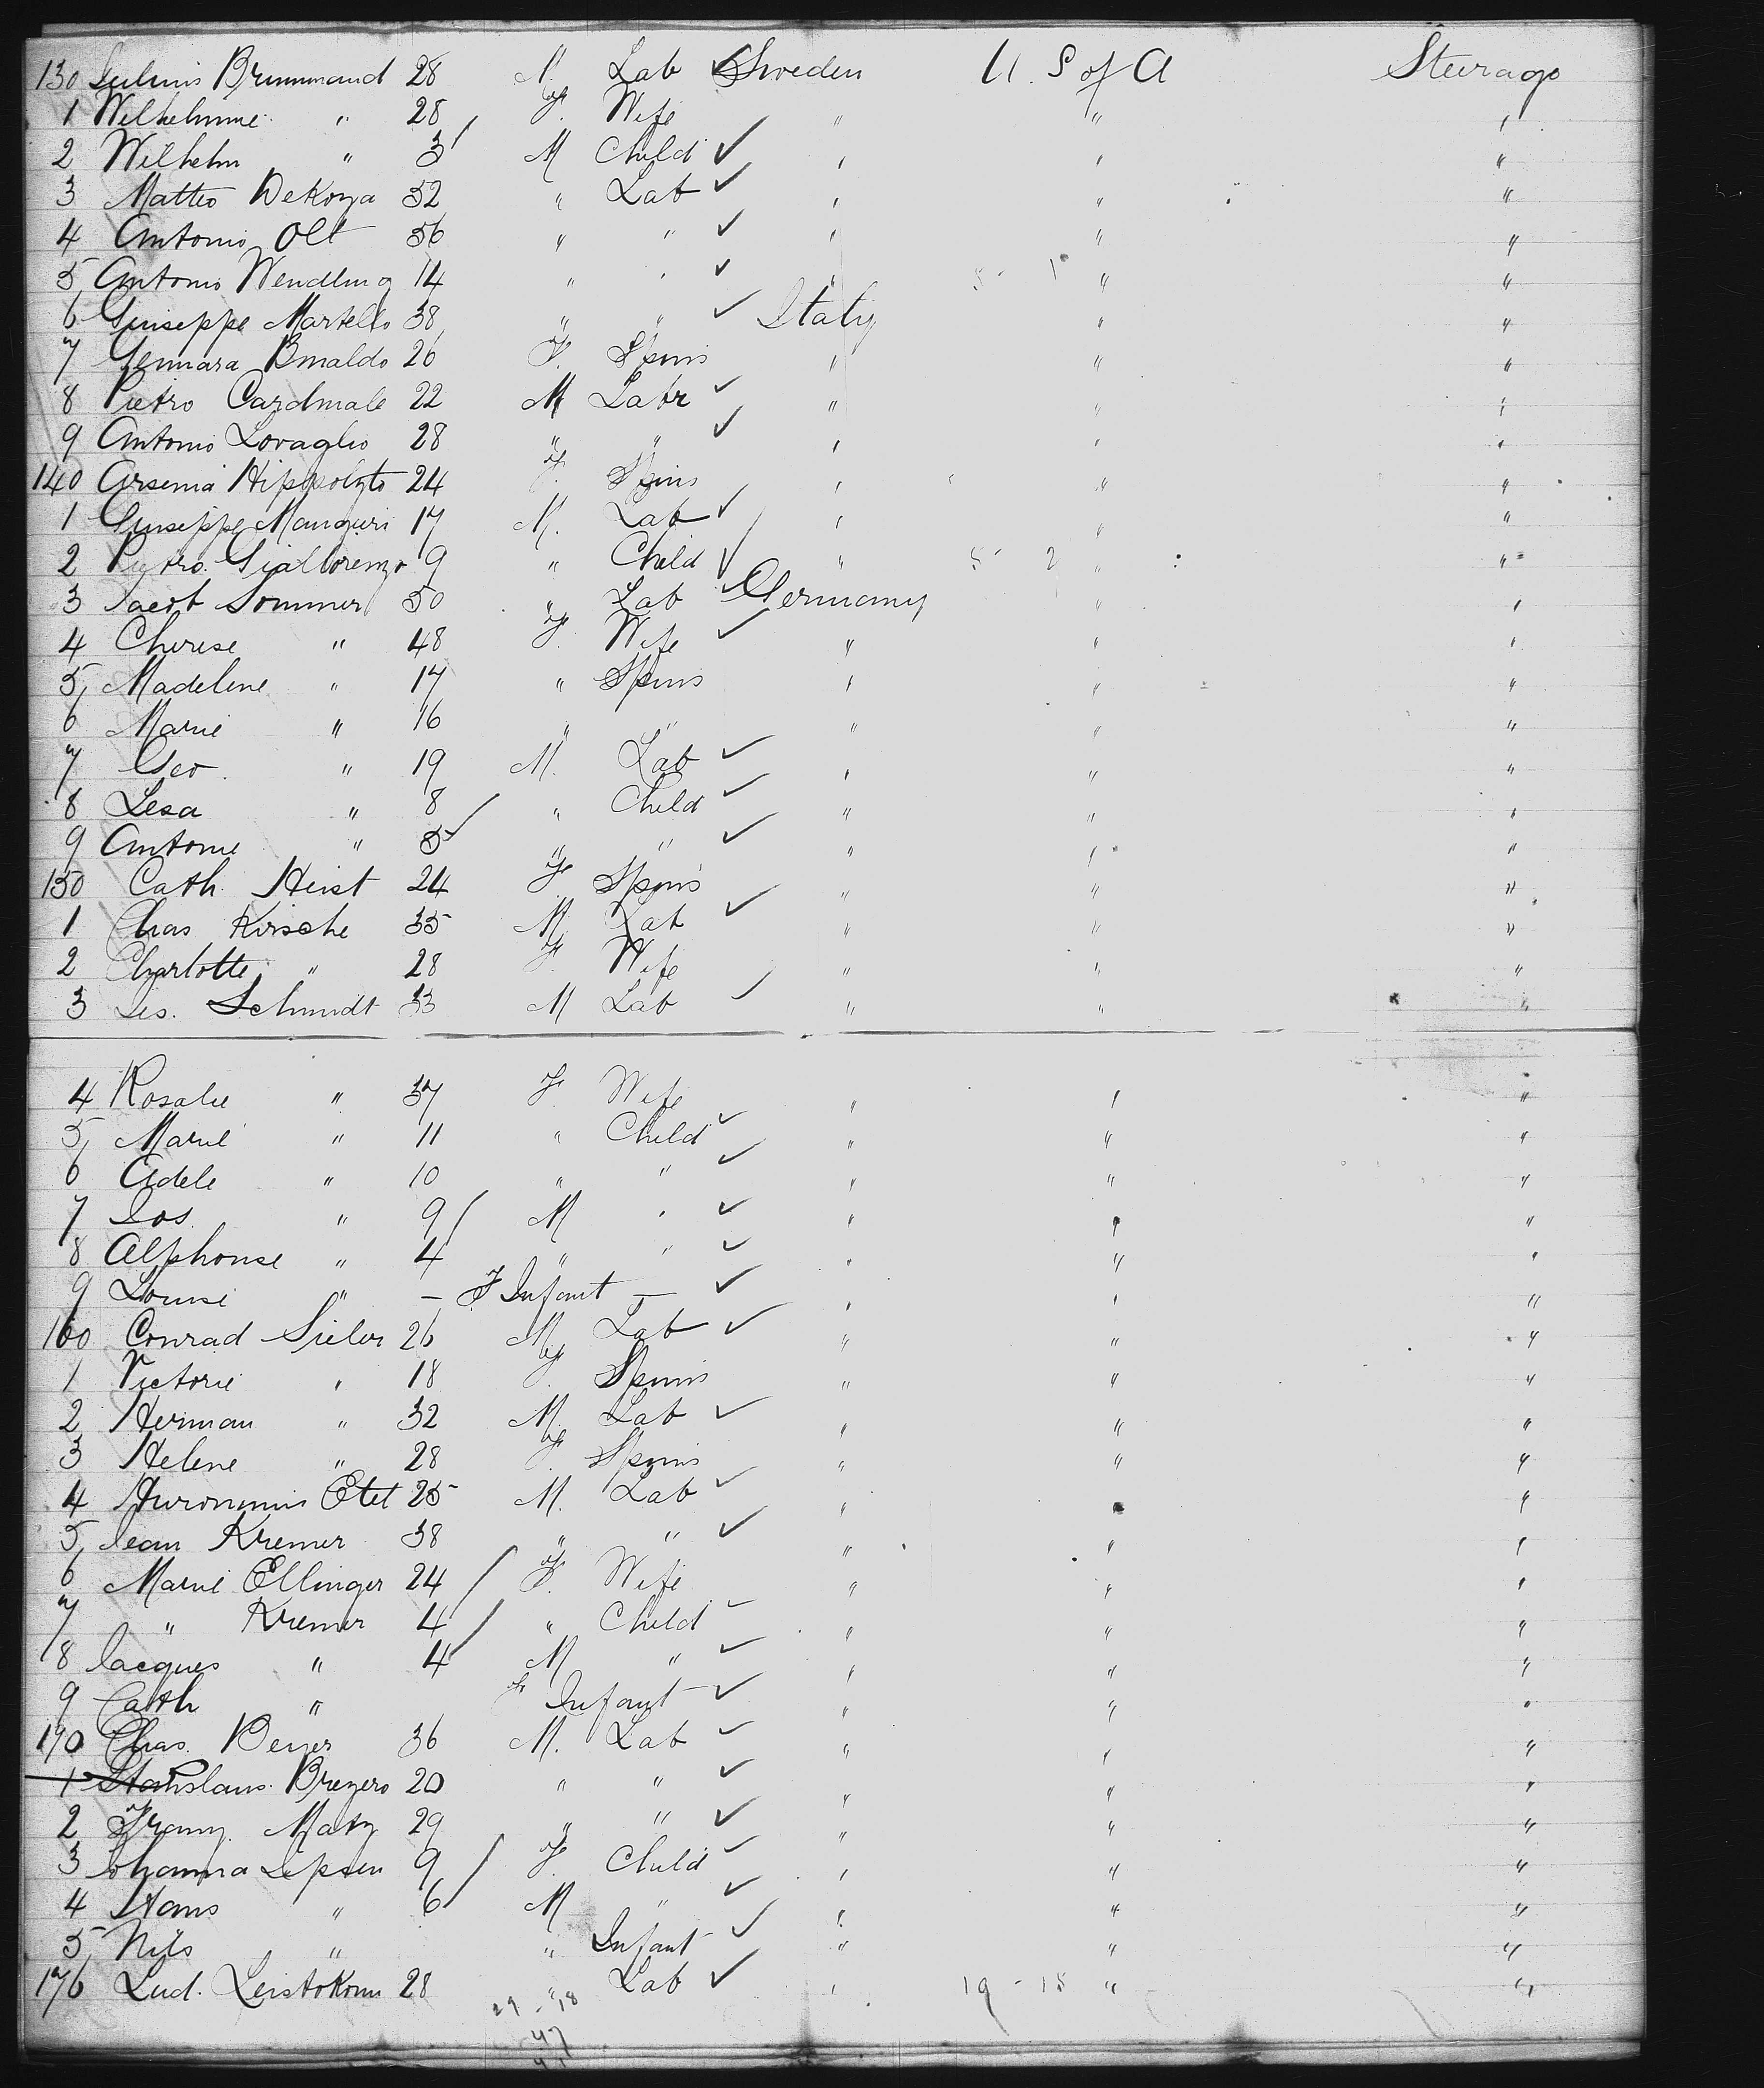 130 Julius Brummand 28 M. Lab Sweden U. S of A Steerage
1 Wilhelmine " 28 F. Wife " " "
2 Wilhelm " 3 M Child " " "
3 Matteo DeKoza 32 " Lab " " "
4 Antonio Olt 36 " " " " "
5 Antonio Wendling 14 " " " " "
6 Giuseppe Martello 38 " " Italy " "
7 Gennara Rinaldo 26 F. Spins " " "
8 Pietro Cardinale 22 M Labr " " "
9 Antonio Lovaglio 28 " " " " "
140 Arsenia Hippolyto 24 F. Spins " " "
1 Giuseppe Manguri 17 M. Lab " " "
2 Pietro Giallorenzo 9 " Child " " "
3 Jacob Sommer 50 " Lab Germany " "
4 Cherese " 48 F. Wife " " "
5 Madeline " 17 " Spins " " "
6 Marie " 16 " " " " "
7 Geo. " 19 M. Lab " " "
8 Lesa " 8 " Child " " "
9 Antonie " 5 " " " " "
150 Cath Heist 24 F Spins " " "
1 Chas Kirsche 35 M. Lab " " "
2 Charlotte " 28 F. Wife " " "
3 Jes. Schmidt 33 M Lab " " "
4 Rosalie " 37 F. Wife " " "
5 Marie " 11 " Child " " "
6 Adele " 10 " " " " "
7 Jos. " 9 M " " " "
8 Alphonse " 4 " " " " "
9 Louise " — F Infant — " " "
160 Conrad Sieler 26 M Lab " " "
1 Victorie " 18 F. Spins " " "
2 Herman " 32 M. Lab " " "
3 Helene " 28 F. Spins " " "
4 Hieronimis Etel 25 M. Lab " " "
5 Jean Kremer 38 " " " " "
6 Marie Ellinger 24 F. Wife " " "
7 " Kremer 4 " Child " " "
8 Jacques " 4 M " " " "
9 Cath " F Infant " " "
170 Chas. Beyer 36 M. Lab " " "
1 Stanislaus Brezero 20 " " " " "
2 Franz Matz 29 " " " " "
3 Johanna Lepsen 9 F. Child " " "
4 Hans " 6 M " " " "
5 Nils " " Infant " " "
176 Lud. Leistokom 28 " Lab " 19 - 15 " "
29 - 18
47